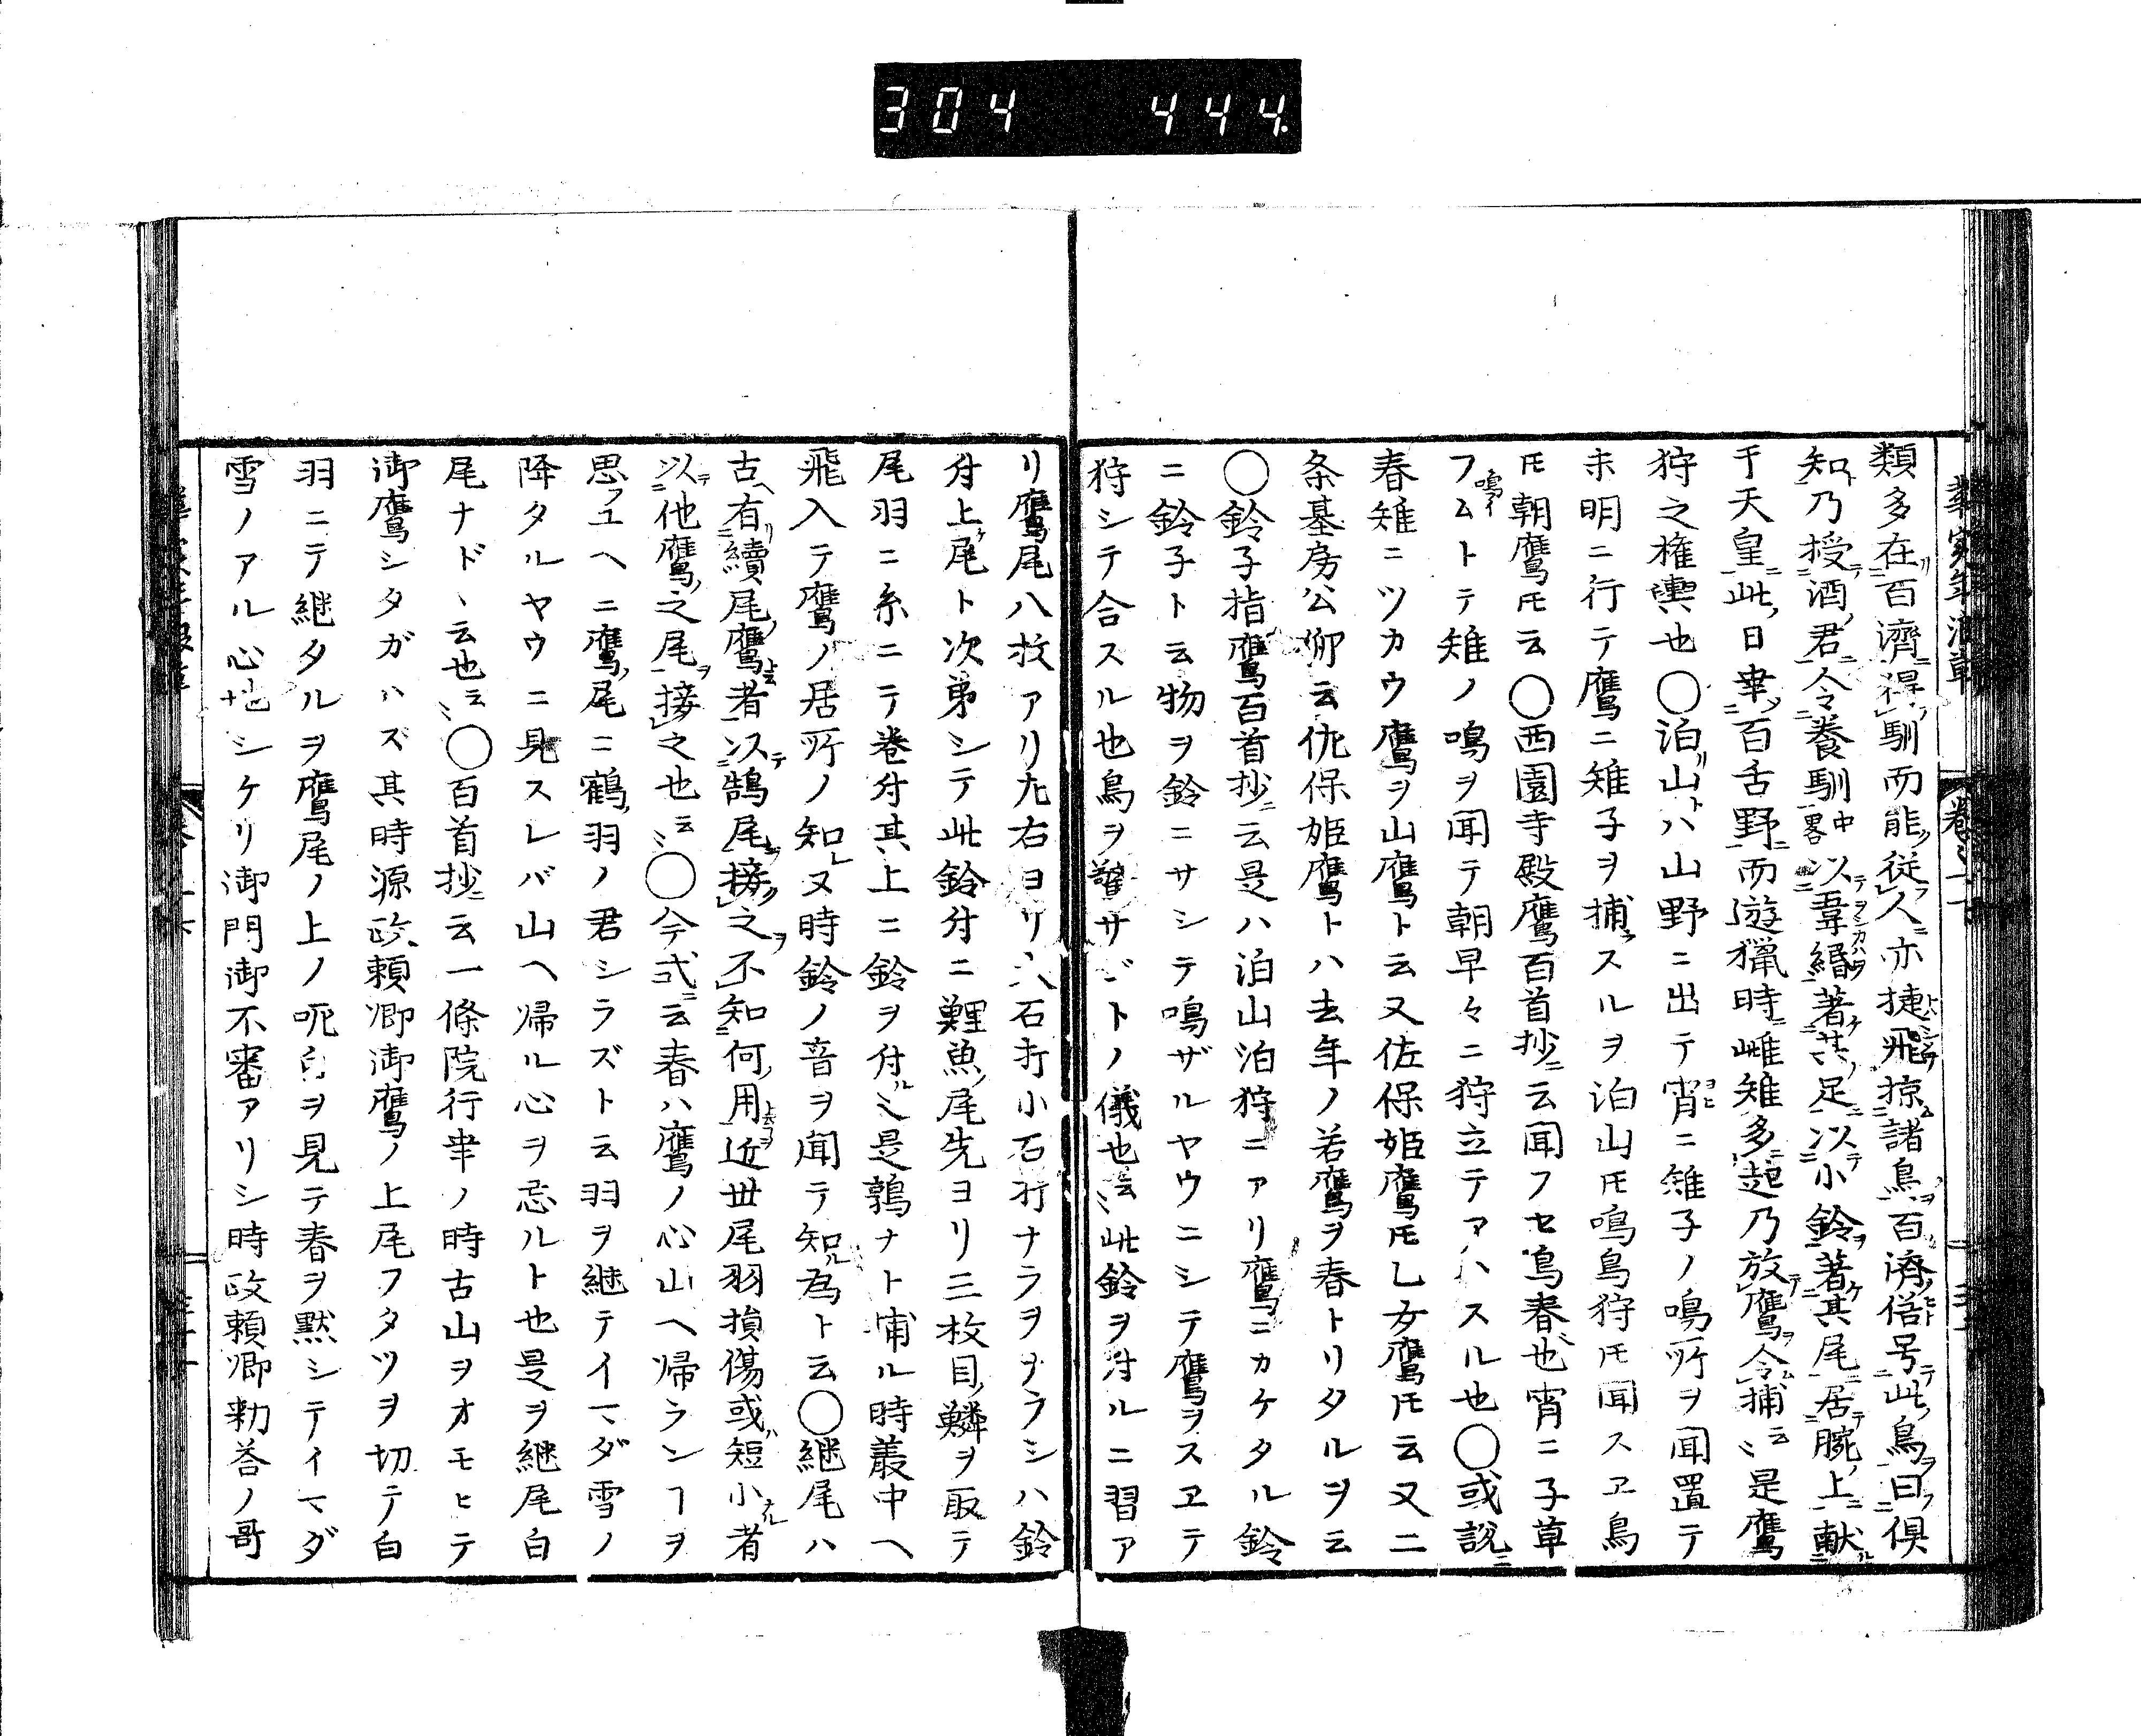 304 444.
類多在百濟得馴而能従人亦捷飛掠諸鳥百濟俗号此鳥曰倶
知乃授酒君令養馴中畧以韋緡著其足以小鈴著其尾居腕上献
于天皇此日幸百舌野而遊猟時雌雉多起乃放鷹令捕云〻是鷹
狩之権輿也〇泊山トハ山野ニ出テ宵ニ雉子ノ鳴所ヲ聞置テ
未明ニ行テ鷹ニ雉子ヲ捕スルヲ泊山𪜈鳴鳥狩𪜈聞スヱ鳥
𪜈朝鷹𪜈云〇西園寺殿鷹百首抄ニ云聞フセ鳥春也宵ニ子草
鳴イ
フムトテ雉ノ鳴ヲ聞テ朝早々ニ狩立テアハスル也〇或説ニ
春雉ニツカウ鷹ヲ山鷹ト云又佐保姫鷹𪜈乙女鷹𪜈云又二
条基房公仰云佐保姫鷹トハ去年ノ若鷹ヲ春トリタルヲ云
〇鈴子指鷹百首抄ニ云是ハ泊山泊狩ニアリ鷹ニカケタル鈴
ニ鈴子ト云物ヲ鈴ニサシテ鳴ザルヤウニシテ鷹ヲスヱテ
狩シテ合スル也鳥ヲ驚サジトノ儀也云〻此鈴ヲ付ルニ習ア
リ鷹尾八枚アリ左右ヨリ大石打小石打ナラヲナラシハ鈴
付上尾ト次第シテ此鈴付ニ鯉魚ノ尾先ヨリ三枚目ノ鱗ヲ取テ
尾羽ニ糸ニテ巻付其上ニ鈴ヲ付ル是鶉ナト捕ル時叢中ヘ
飛入テ鷹ノ居所ノ知レヌ時鈴ノ音ヲ聞テ知ル為ト云〇継尾ハ
古ヘ有續尾鷹者以鵠尾接之不知何用近世尾羽損傷或ハ短小者
以他鷹之尾接之也云〻〇今式ニ云春ハ鷹ノ心山ヘ帰ランヿヲ
思フユヘニ鷹ノ尾ニ鶴ノ羽ノ君シラズト云羽ヲ継テイマダ雪ノ
降タルヤウニ見スレバ山ヘ帰ル心ヲ忘ルト也是ヲ継尾白
尾ナドヽ云也云〻〇百首抄ニ云一條院行幸ノ時古山ヲオモヒテ
御鷹シタガハズ其時源政頼卿御鷹ノ上尾フタツヲ切テ白
羽ニテ継タルヲ鷹尾ノ上ノ呃白ヲ見テ春ヲ黙シテイマダ
雪ノアル心地シケリ御門御不審アリシ時政頼卿勅答ノ哥